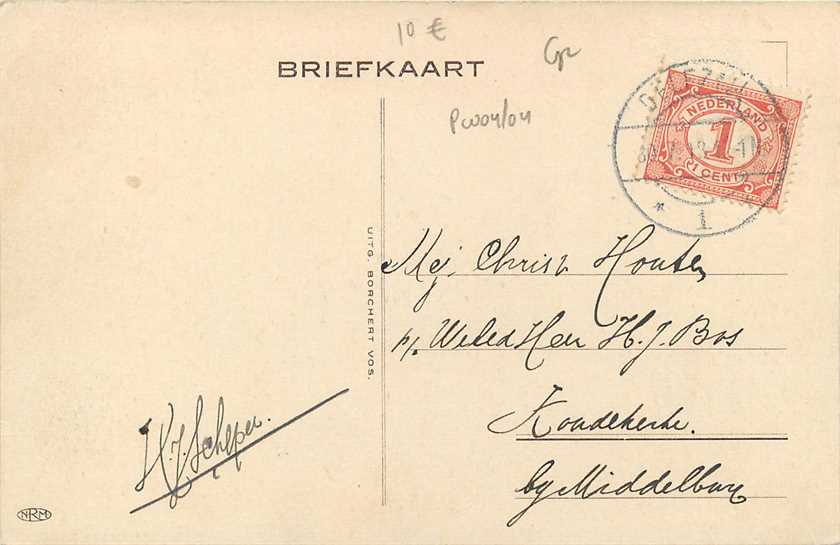 10 €
BRIEFKAART
Pw04/04
NEDERLAND
1
1 CENT
1
UITG. BORCHERT VOS.
Mej. Christ. Houten
p/a WelEd Heer H. J. Bos
Koudekerke.
by Middelburg
H. J. Scheper.
NRM